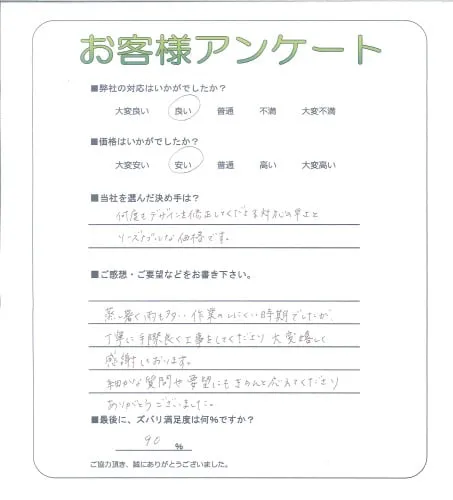 お客様アンケート
■弊社の対応はいかがでしたか？
大変良い 良い 普通 不満 大変不満
■価格はいかがでしたか？
大変安い 安い 普通 高い 大変高い
■当社を選んだ決め手は？
何度もデザインを修正してくださる対応の早さと
リーズナブルな価格です。
■ご感想・ご要望などをお書き下さい。
蒸し暑く雨も多い作業のしにくい時期でしたが、
丁寧に手際良く工事をしてくださり大変嬉しく
感謝しております。
細かな質問や要望にもきちんと応えてくださり
ありがとうございました。
■最後に、ズバリ満足度は何％ですか？
90 ％
ご協力頂き、誠にありがとうございました。